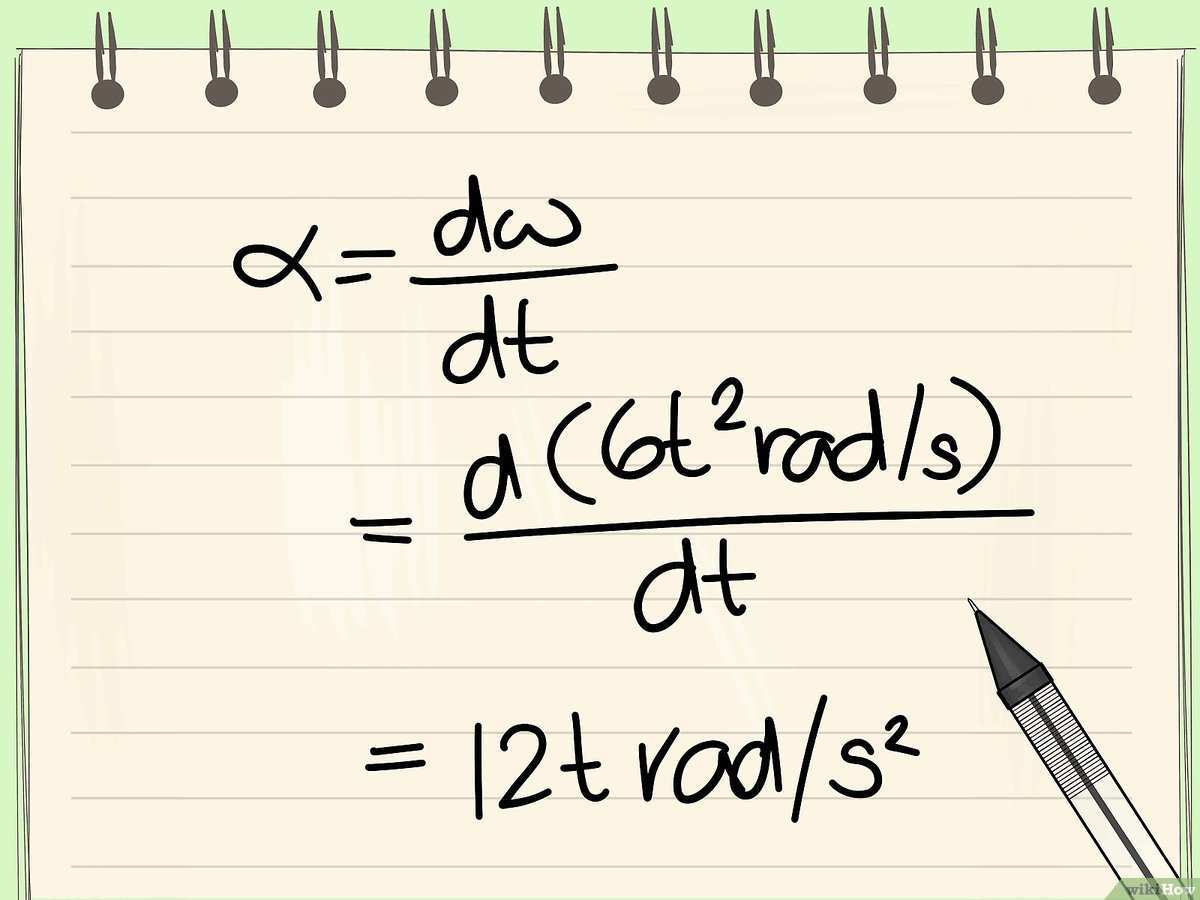 α = dω/dt
= d(6t² rad/s)/dt
= 12t rad/s²
wikiHow